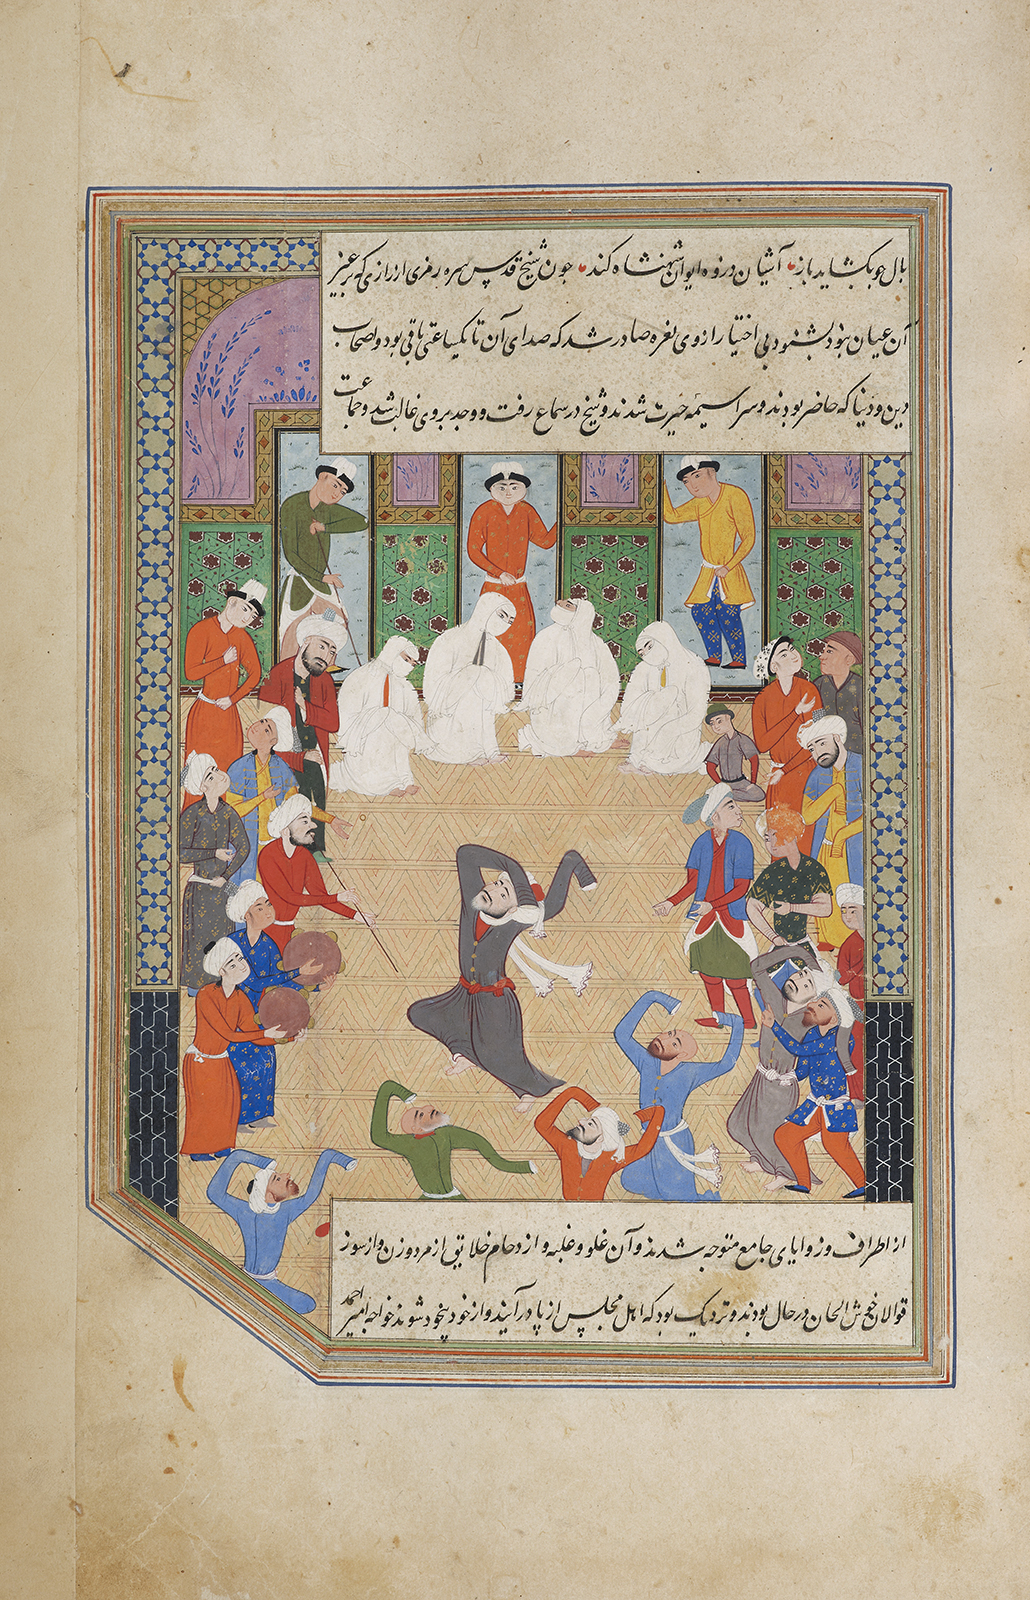 بال چو بکشاید باز آشیان در ذروه ایوان شهنشاه کند چون شیخ قدس سره رمزی از رازی که عزیز
آن عیان بود بشنود بی اختیار از وی نعره صادر شد که صدای آن تا یکساعتی باقی بود و اصحاب
دین و دنیا که حاضر بودند سراسیمه حیرت شدند و شیخ در سماع رفت و وجد بر وی غالب شد و جماعت
از اطراف و زوایای جامع متوجه شدند و آن غلو و غلبه و ازدحام خلایق از مرد و زن و از سوز
قوالان خوش الحان در حال بودند و نزدیک بود که اهل مجلس از پا در آیند و از خود بیخود شوند خواجه امیر احمد